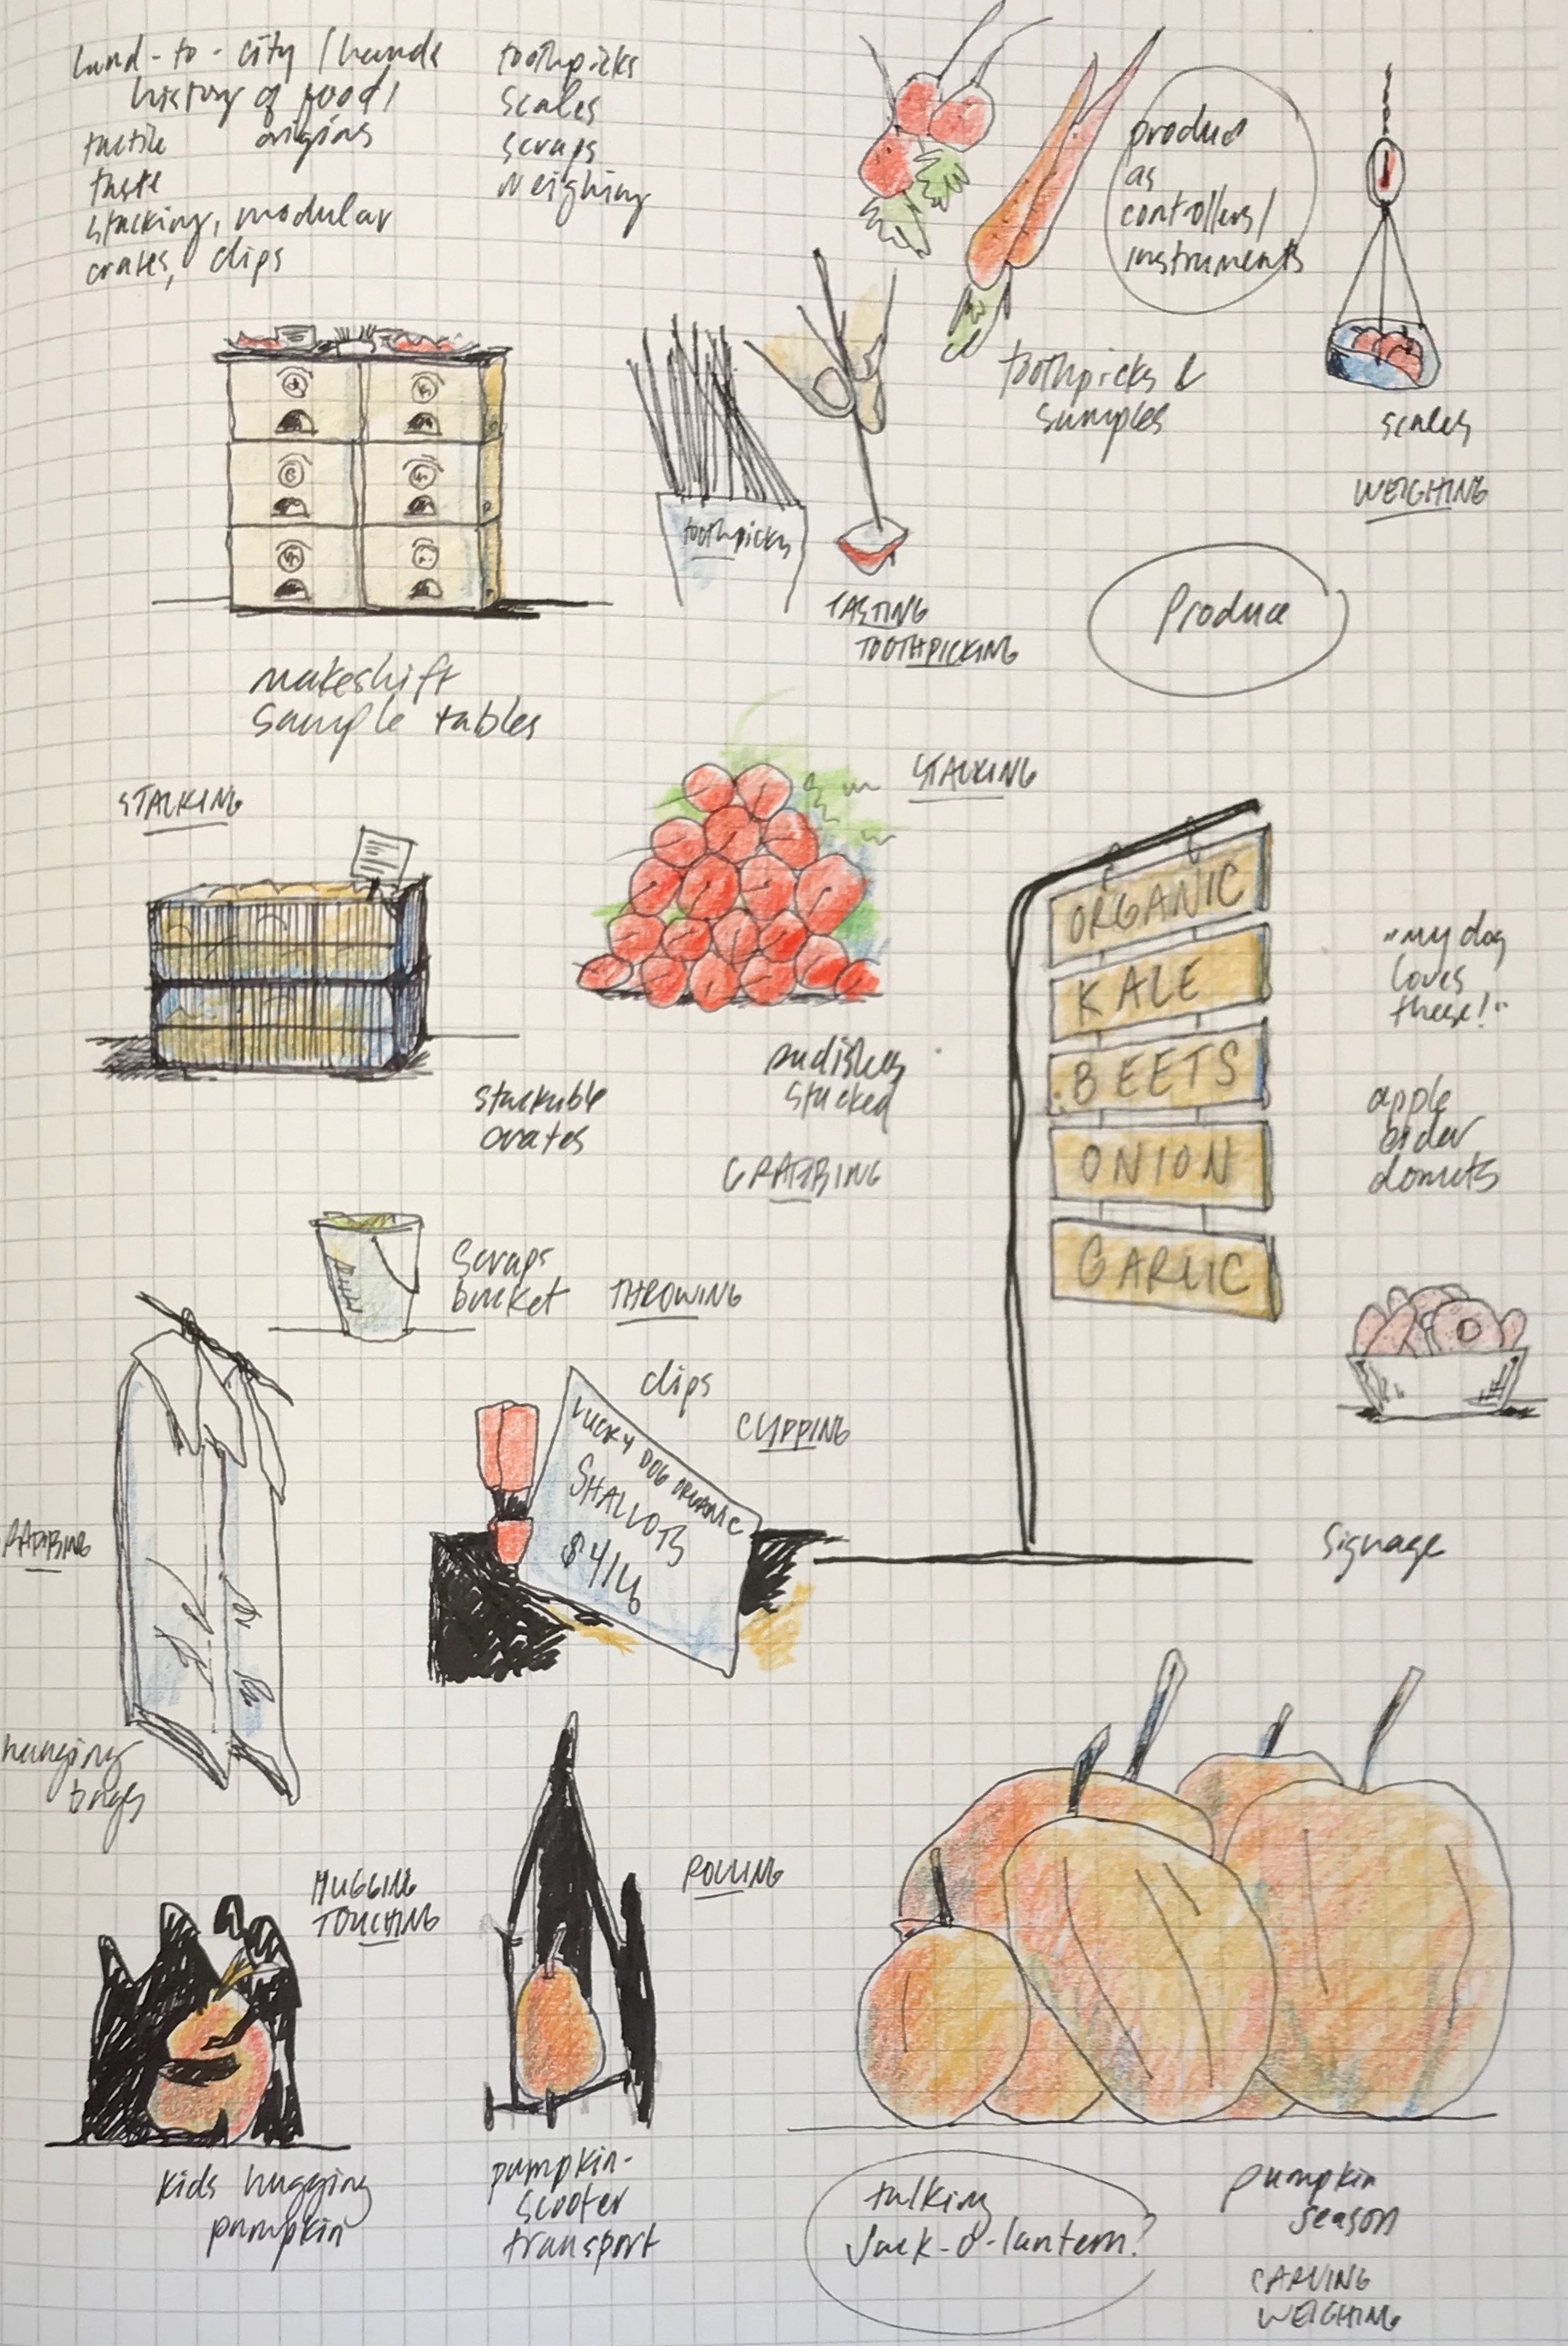 land-to-city / hands
history of food /
tactile origins
taste
stacking, modular
crates, clips
toothpicks
scales
scraps
weighing
produce
as
controllers/
instruments
toothpicks &
samples
scales
WEIGHING
toothpicks
TASTING
TOOTHPICKING
Produce
makeshift
sample tables
STACKING
STACKING
ORGANIC
KALE
BEETS
ONION
GARLIC
"my dog
loves
these!"
stackable
crates
radishes
stacked
GRABBING
apple
cider
donuts
scraps
bucket
THROWING
clips
CLIPPING
LUCKY DOG ORGANIC
SHALLOTS
$4/lb
GRABBING
signage
hanging
bags
HUGGING
TOUCHING
ROLLING
kids hugging
pumpkin
pumpkin-
scooter
transport
talking
Jack-o-lantern?
pumpkin
season
CARVING
WEIGHING